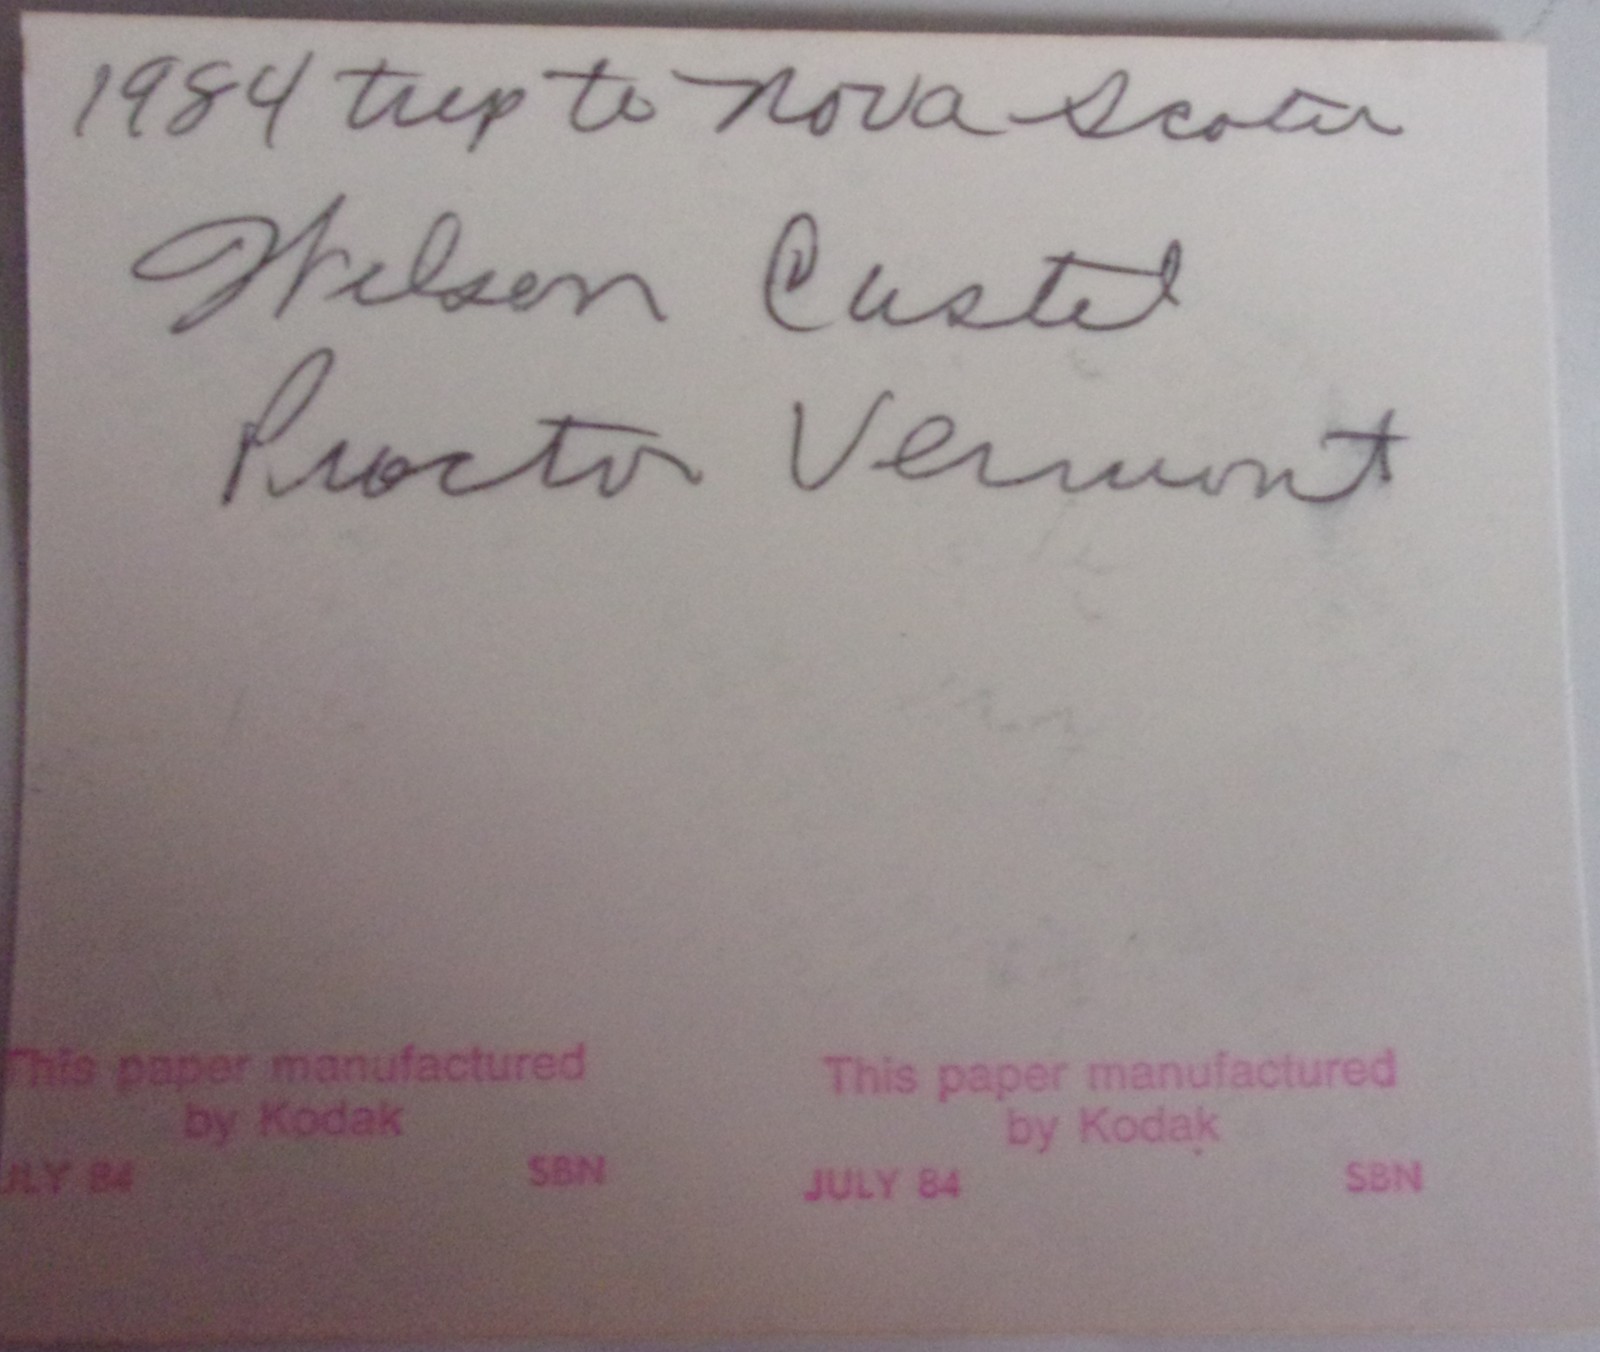 1984 trip to Nova Scotia
Wilson Castel
Proctor Vermont
This paper manufactured This paper manufactured
by Kodak by Kodak
JULY 84 SBN JULY 84 SBN